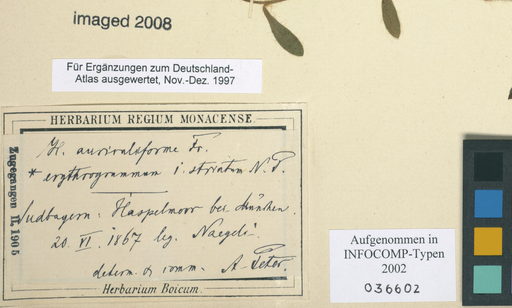 imaged 2008
Für Ergänzungen zum Deutschland-
Atlas ausgewertet, Nov.-Dez. 1997
HERBARIUM REGIUM MONACENSE
H. auriculaeforme Fr.
* erythrogrammum 1. striatum N. P.
Südbayern: Haspelmoor bei München.
20. VI. 1867 leg. Naegeli.
determ. & comm. A. Peter.
Herbarium Boicum.
Zugegangen II, 1905
Aufgenommen in
INFOCOMP-Typen
2002
036602